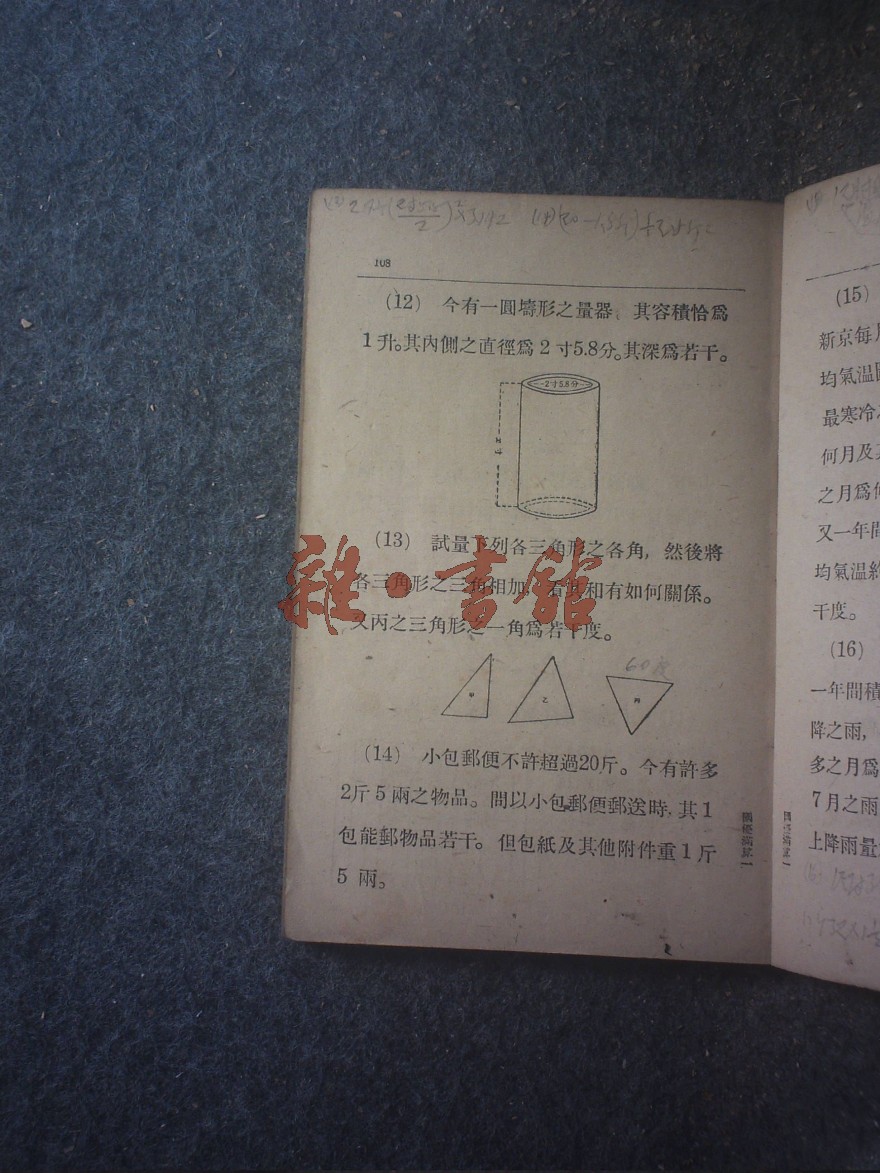 108
(12) 今有一圓壔形之量器, 其容積恰爲
1升。其內側之直徑爲2寸5.8分。其深爲若干。
2寸5.8分
(13) 試量下列各三角形之各角, 然後將
各三角形之三角相加, 看其和有如何關係。
又丙之三角形之一角爲若干度。
60度
甲
乙
丙
(14) 小包郵便不許超過20斤。今有許多
2斤5兩之物品。問以小包郵便郵送時, 其1
包能郵物品若干。但包紙及其他附件重1斤
5兩。
雜·書館
(15)
新京每月
均氣溫
最寒冷
何月及
之月爲
又一年間
均氣溫
干度。
(16)
一年間積
降之雨,
多之月爲
7月之雨
上降雨量